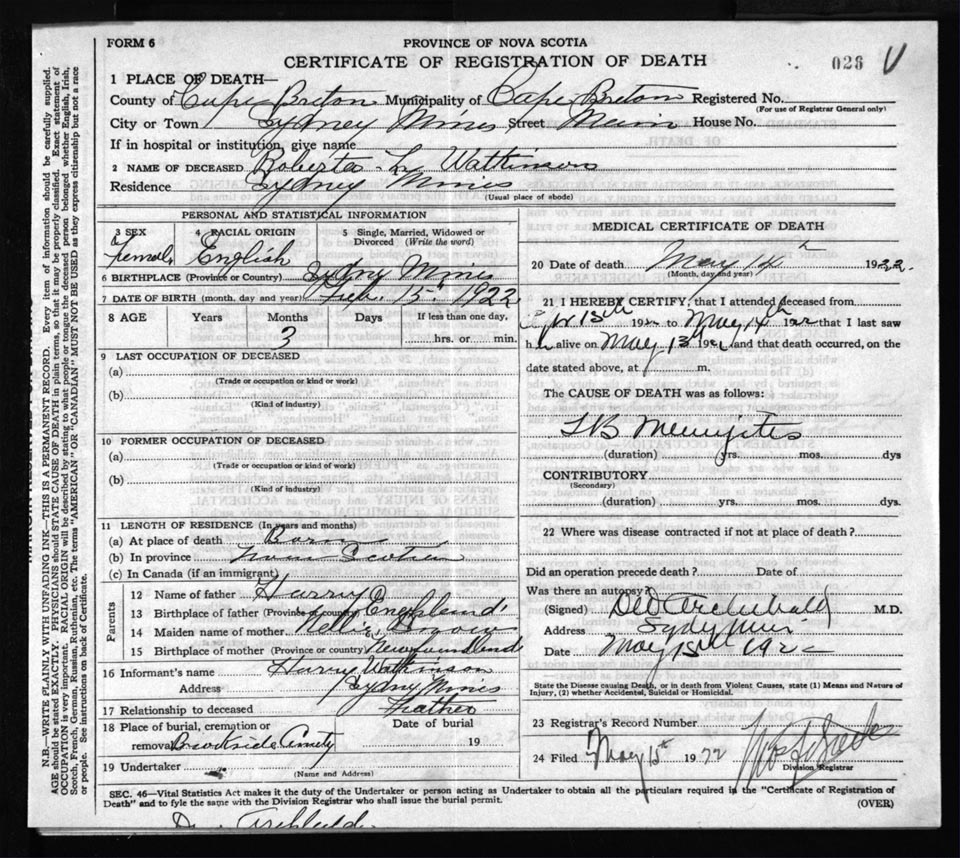 FORM 6
PROVINCE OF NOVA SCOTIA
CERTIFICATE OF REGISTRATION OF DEATH
026 V
1 PLACE OF DEATH—
County of Cape Breton Municipality of Cape Breton Registered No.
(For use of Registrar General only)
City or Town Sydney Mines Street Main House No.
If in hospital or institution, give name
2 NAME OF DECEASED Roberta L. Watkinson
Residence Sydney Mines
(Usual place of abode)
PERSONAL AND STATISTICAL INFORMATION
3 SEX 4 RACIAL ORIGIN 5 Single, Married, Widowed or Divorced (Write the word)
Female English
6 BIRTHPLACE (Province or Country) Sydny Mines
7 DATE OF BIRTH (month, day and year) Feb. 15th 1922
8 AGE Years Months Days If less than one day,
3 hrs. or min.
9 LAST OCCUPATION OF DECEASED
(a)
(Trade or occupation or kind or work)
(b)
(Kind of industry)
10 FORMER OCCUPATION OF DECEASED
(a)
(Trade or occupation or kind or work)
(b)
(Kind of industry)
11 LENGTH OF RESIDENCE (In years and months)
(a) At place of death Born
(b) In province Nova Scotia
(c) In Canada (if an immigrant)
Parents
12 Name of father Harry
13 Birthplace of father (Province or country) England
14 Maiden name of mother Nellie
15 Birthplace of mother (Province or country) Newfoundland
16 Informant's name Harry Watkinson
Address Sydny Mines
17 Relationship to deceased Feather
18 Place of burial, cremation or Date of burial
removal Brookside Cemety 19
19 Undertaker
(Name and Address)
MEDICAL CERTIFICATE OF DEATH
20 Date of death May 14th 1922.
(Month, day and year)
21 I HEREBY CERTIFY, that I attended deceased from
13th 192 to May 14th 1922 that I last saw
h alive on May 13th 192 and that death occurred, on the
date stated above, at m.
The CAUSE OF DEATH was as follows:
TB Meningites
(duration) yrs. mos. dys
CONTRIBUTORY
(Secondary)
(duration) yrs. mos. dys.
22 Where was disease contracted if not at place of death?
Did an operation precede death? Date of
Was there an autopsy?
(Signed) Archibald M.D.
Address
Date May 15th 1922
State the Disease causing Death, or in death from Violent Causes, state (1) Means and Nature of
Injury, (2) whether Accidental, Suicidal or Homicidal.
23 Registrar's Record Number
24 Filed May 15th 1922
Division Registrar
SEC. 46—Vital Statistics Act makes it the duty of the Undertaker or person acting as Undertaker to obtain all the particulars required in the "Certificate of Registration of
Death" and to fyle the same with the Division Registrar who shall issue the burial permit.
(OVER)
N.B.—WRITE PLAINLY WITH UNFADING INK—THIS IS A PERMANENT RECORD. Every item of information should be carefully supplied.
AGE should be stated EXACTLY. PHYSICIANS should STATE CAUSE OF DEATH in plain terms, so that it may be properly classified. Exact statement of
OCCUPATION is very important. RACIAL ORIGIN will be described by stating to what people or tongue the deceased person belonged whether English, Irish,
Scotch, French, German, Russian, Ruthenian, etc. The terms "AMERICAN" or "CANADIAN" MUST NOT BE USED as they express citizenship but not a race
or people. See instructions on back of Certificate.